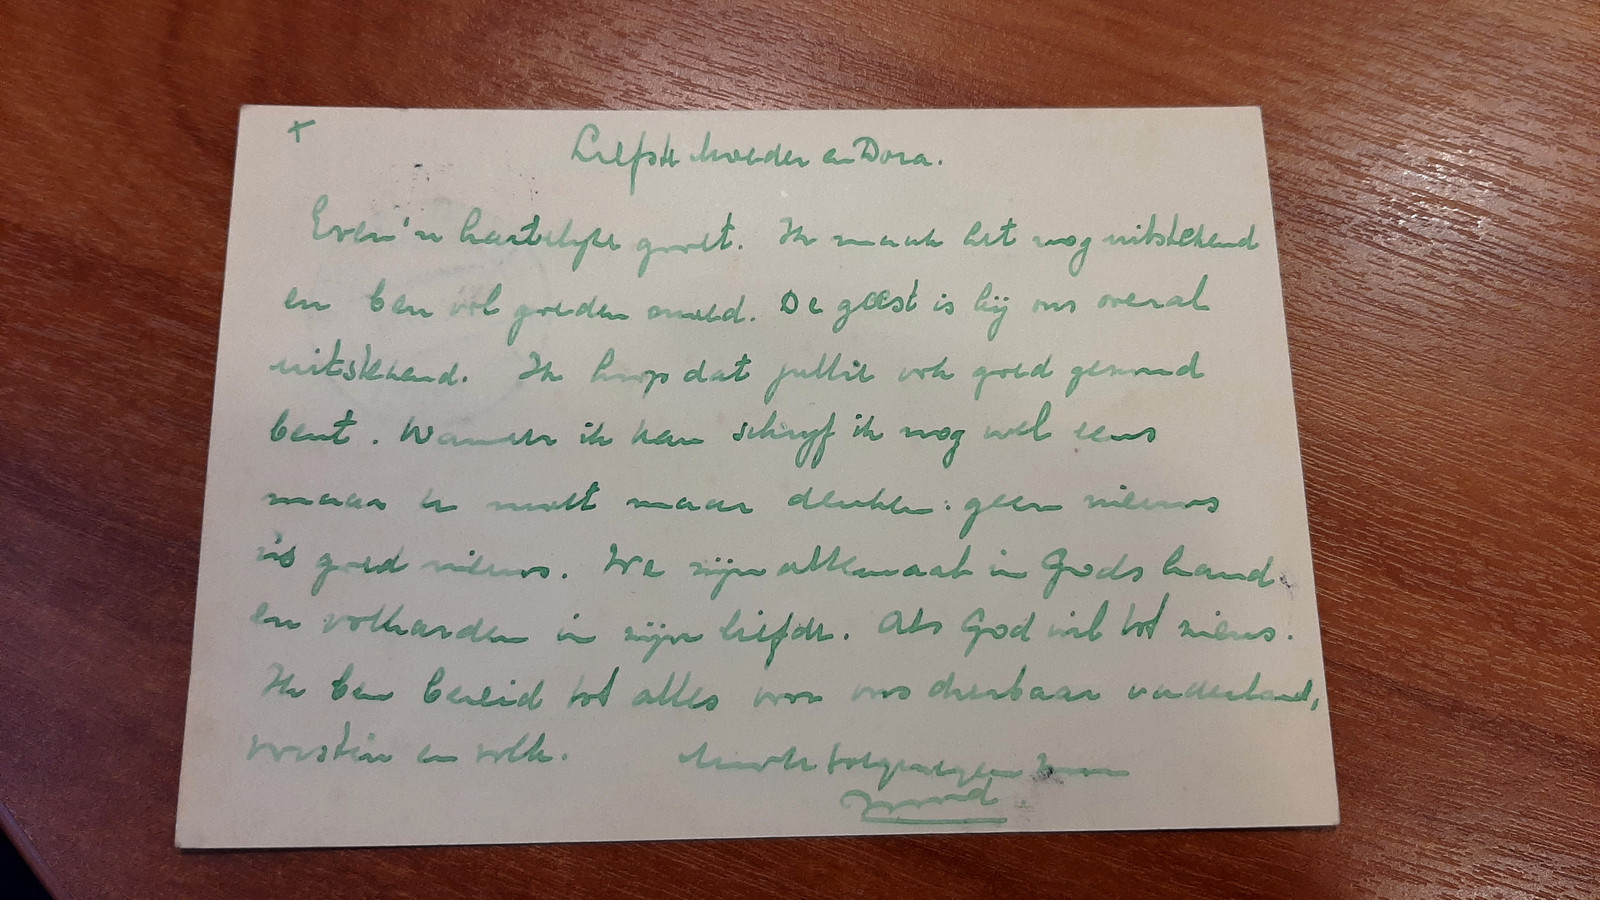 +
Liefste Moeder en Dora.
Even 'n hartelijke groet. Ik maak het nog uitstekend
en ben vol goeden moed. De geest is bij ons overal
uitstekend. Ik hoop dat jullie ook goed gezond
bent. Wanneer ik kan schrijf ik nog wel eens
maar U moet maar denken: geen nieuws
is goed nieuws. We zijn allemaal in Gods hand
en volharden in zijn liefde. Als God wil tot ziens.
Ik ben bereid tot alles voor ons dierbaar vaderland,
vorstin en volk.
Uw toegenegen Zoon